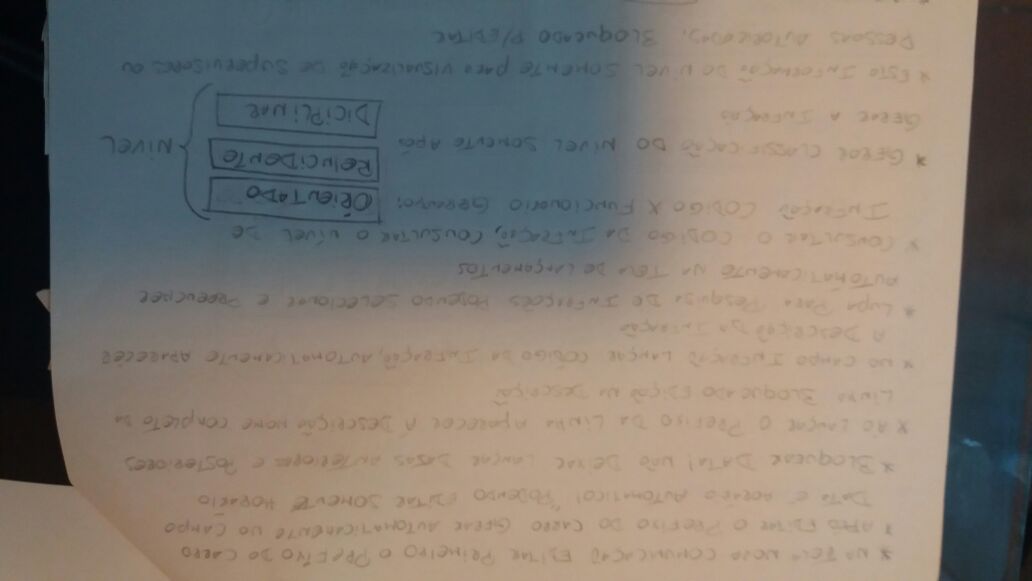 * NA TELA NOVA COMUNICAÇÃO EDITAR PRIMEIRO O PREFIXO DO CARRO
* APÓS EDITAR O PREFIXO DO CARRO GERAR AUTOMATICAMENTE NO CAMPO
DATA E HORÁRIO AUTOMATICO! "PODENDO EDITAR SOMENTE HORÁRIO
* BLOQUEAR DATA! NÃO DEIXAR LANÇAR DATAS ANTERIORES E POSTERIORES
* AO LANÇAR O PREFIXO DA LINHA APARECER A DESCRIÇÃO NOME COMPLETO DA
LINHA BLOQUEADO EDIÇÃO NA DESCRIÇÃO
* NO CAMPO INFRAÇÃO LANÇAR CÓDIGO DA INFRAÇÃO, AUTOMATICAMENTE APARECER
A DESCRIÇÃO DA INFRAÇÃO
* LUPA PARA PESQUISA DE INFRAÇÕES PODENDO SELECIONAR E PREENCHER
AUTOMATICAMENTE NA TELA DE LANÇAMENTOS
* CONSULTAR O CODIGO DA INFRAÇÃO, CONSULTAR O NÍVEL DE
INFRAÇÃO CODIGO X FUNCIONARIO GERANDO:
ORIENTADO
REINCIDENTE
DICIPLINAR
NIVEL
* GERAR CLASSIFICAÇÃO DO NIVEL SOMENTE APÓS
GERAR A INFRAÇÃO
* ESTA INFORMAÇÃO DO NIVEL SOMENTE PARA VISUALIZAÇÃO DE SUPERVISORES OU
PESSOAS AUTORIZADAS. BLOQUEADO P/EDITAR